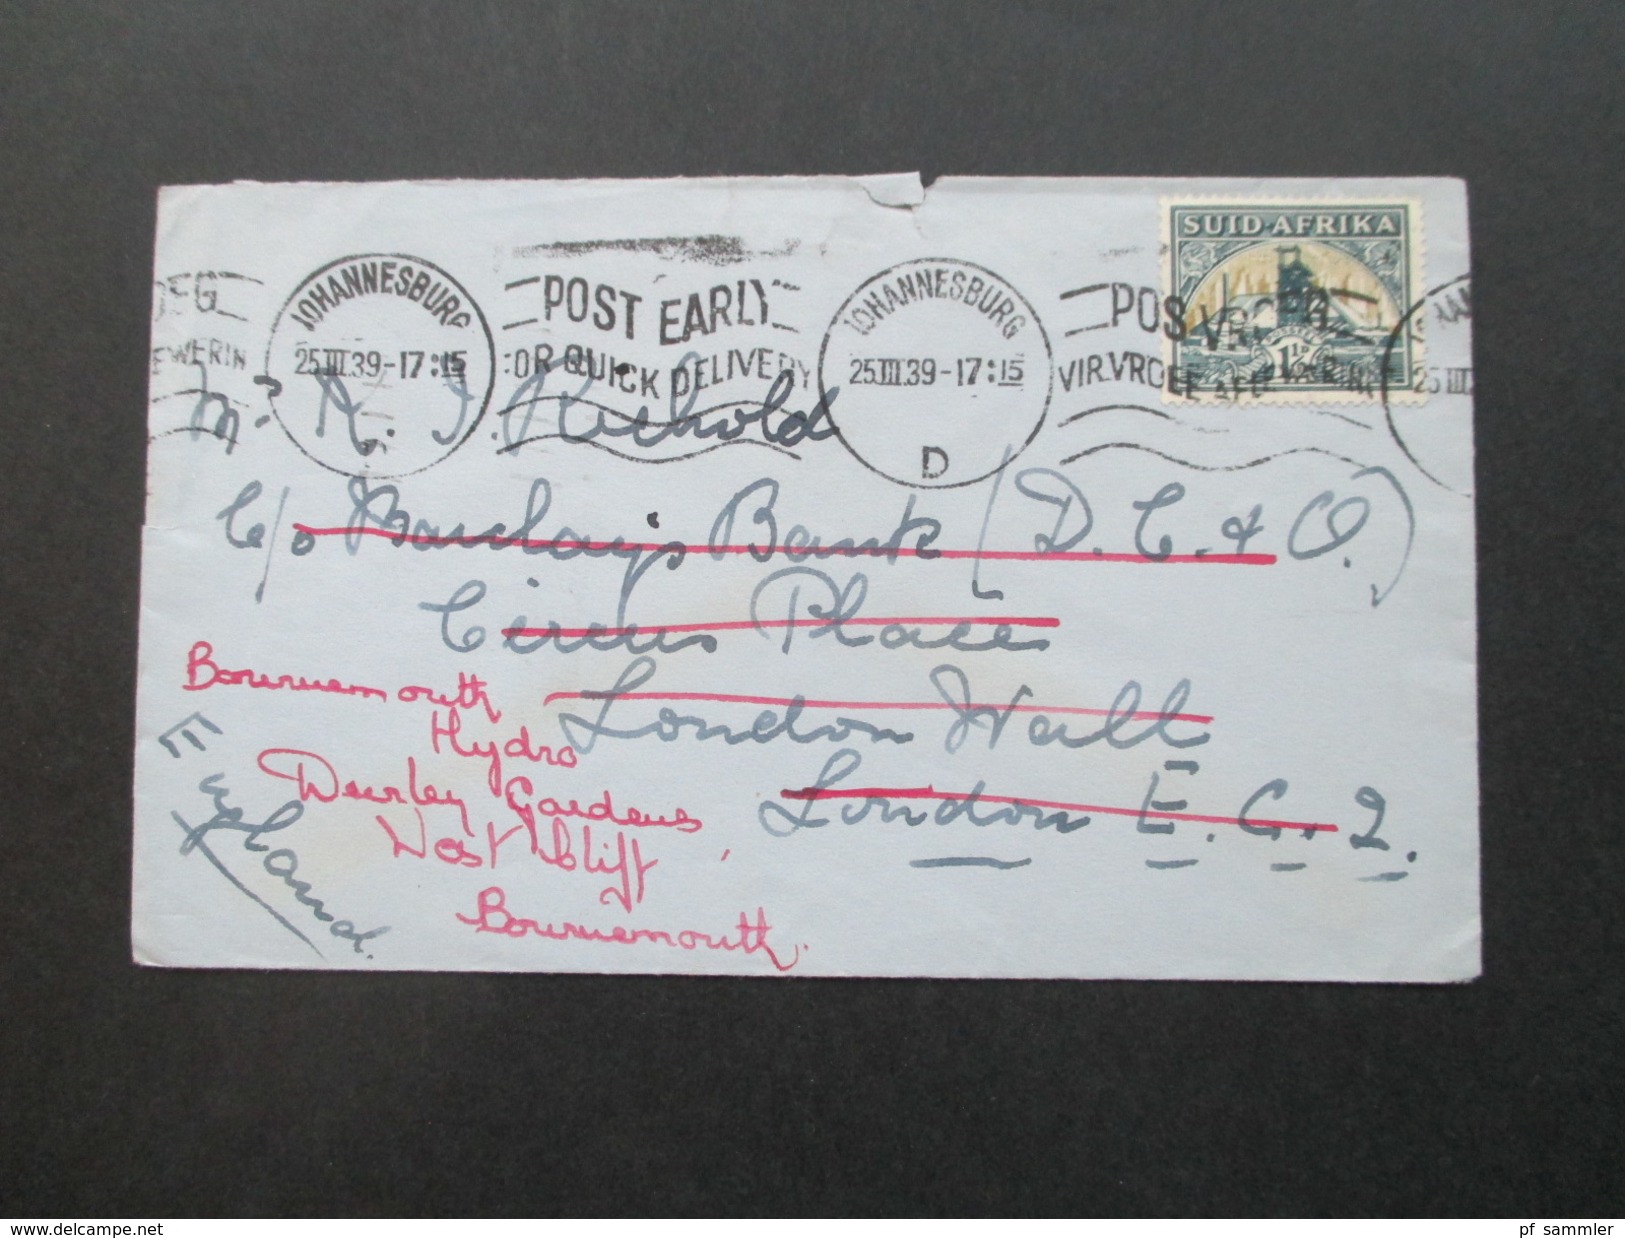 SUID-AFRIKA
1½
JOHANNESBURG
25 III 39-17:15
POST EARLY
FOR QUICK DELIVERY
JOHANNESBURG
25 III 39-17:15
D
POS
VIR VROEE
25 III
EWERIN
Mr. K. J.
c/o Barclays Bank (D. C. & O.)
Circus Place
London Wall
London E. C. 2.
England.
Bournemouth
Hydro
Durley Gardens
West Cliff
Bournemouth.
pf sammler
www.delcampe.net